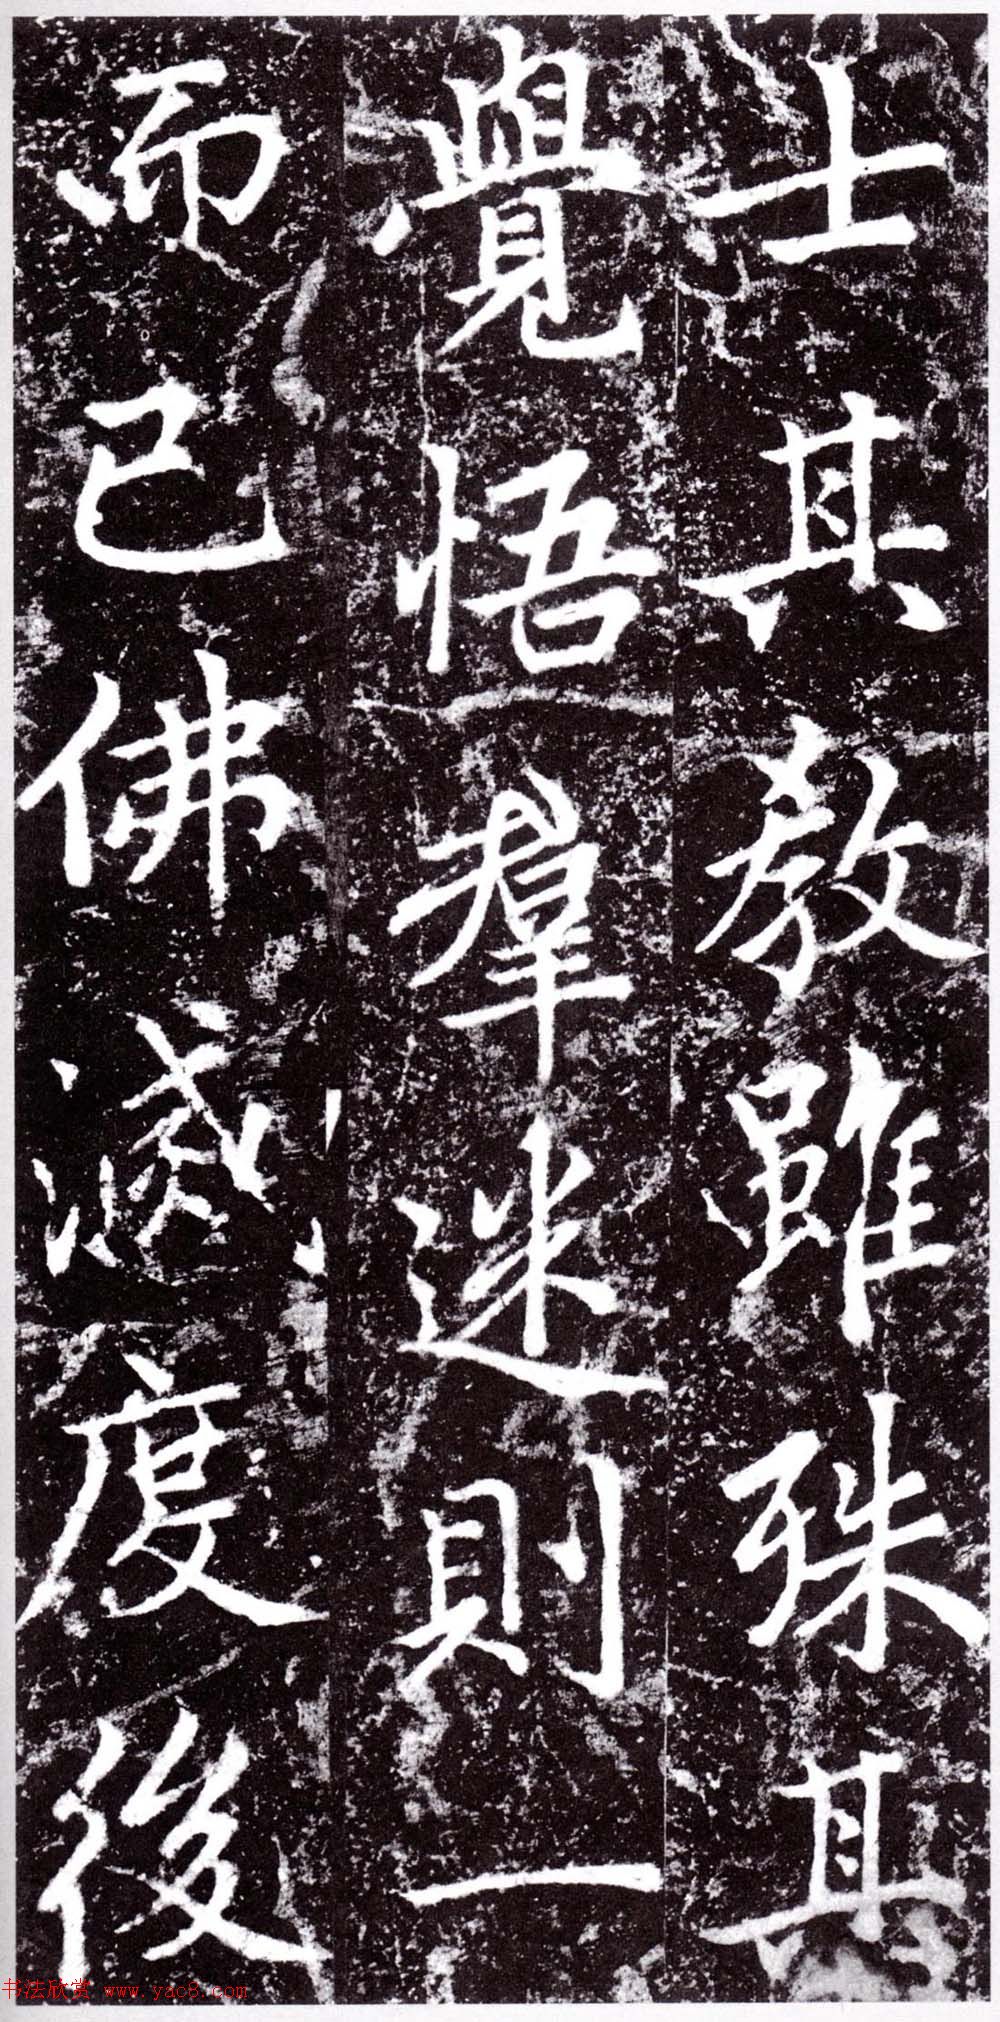 士其教雖殊其
覺悟羣迷則一
而已佛滅度後
书法欣赏 www.yac8.com